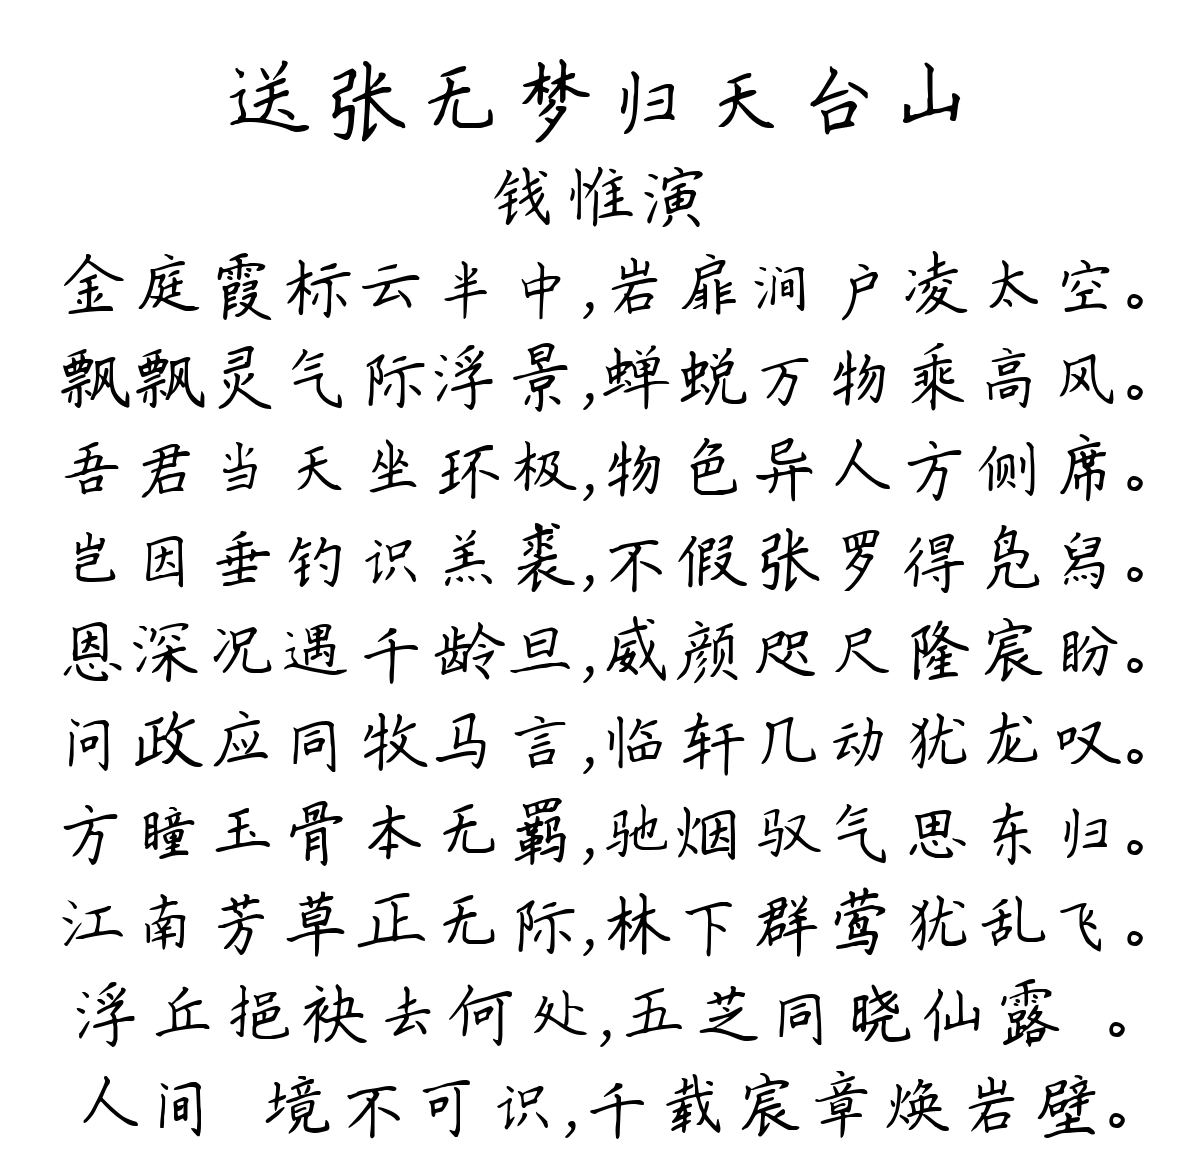 送张无梦归天台山
钱惟演
金庭霞标云半中,岩扉涧户凌太空。
飘飘灵气际浮景,蝉蜕万物乘高风。
吾君当天坐环极,物色异人方侧席。
岂因垂钓识羔裘,不假张罗得凫舄。
恩深况遇千龄旦,威颜咫尺隆宸盼。
问政应同牧马言,临轩几动犹龙叹。
方瞳玉骨本无羁,驰烟驭气思东归。
江南芳草正无际,林下群莺犹乱飞。
浮丘挹袂去何处,五芝同晓仙露 。
人间 境不可识,千载宸章焕岩壁。